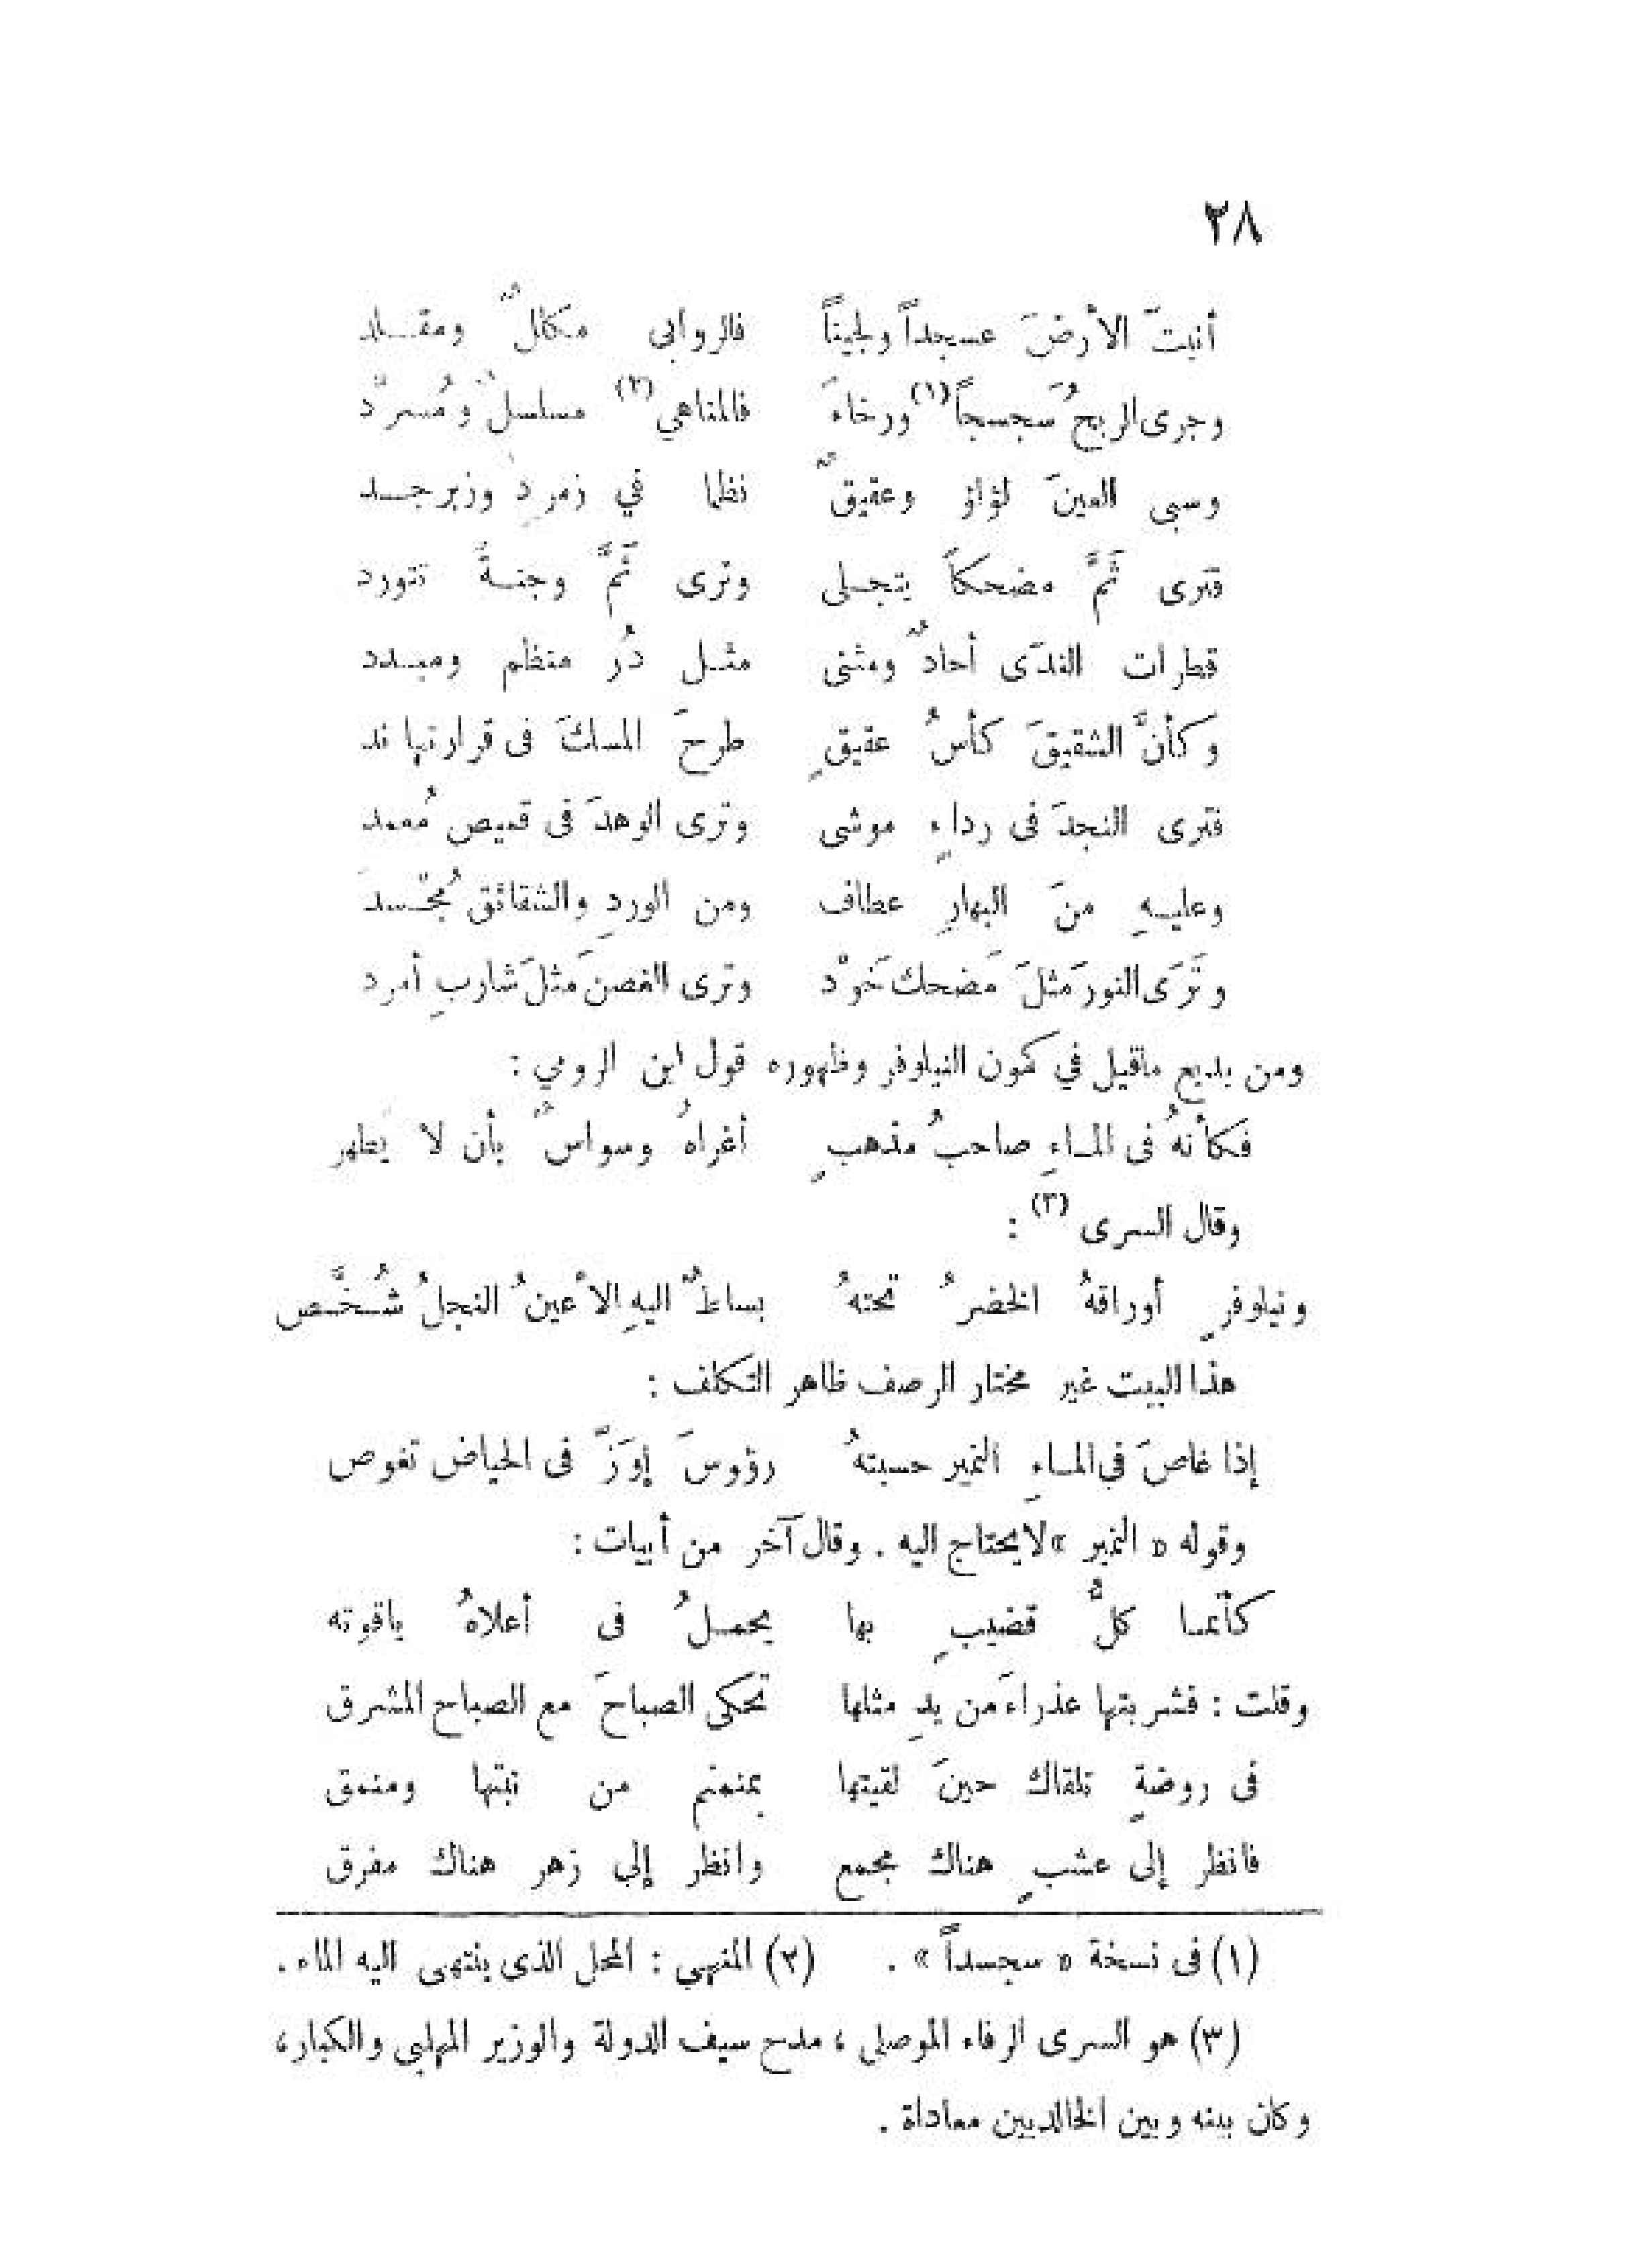 ٢٨
أنبتَ الأرضَ عسجداً ولجيناً فالروابى مكللٌ ومقلد
وجرى الريحُ سجسجاً (١) ورخاءَ فالمناهي (٢) مسلسلٌ ومُسرَّد
وسبى العينَ لؤلؤ وعقيقٌ نظما في زمردِ وزبرجد
فترى ثَمَّ مضحكاً يتجلى وترى ثَمَّ وجنةً تتورد
قطرات الندَى أحادٌ ومثنى مثل دُر منظم ومبدد
وكأنَّ الشقيقَ كأسُ عقيقٍ طرحَ المسكَ فى قرارتها ند
فترى النجدَ فى رداءٍ موشى وترى الوهدَ فى قميص مُعمد
وعليهِ منَ البهارِ عطاف ومن الوردِ والشقائق مُجسد
وتَرَى النورَ مثلَ مَضحك خَوْد وترى الغصنَ مثلَ شاربِ أمرد
ومن بديع ماقيل في كون النيلوفر وظهوره قول ابن الرومي :
فكأنهُ فى الماءِ صاحبُ مذهبٍ أغراهُ وسواسٌ بأن لا يَطهر
وقال السرى (٣) :
ونيلوفرٍ أوراقهُ الخضرُ تحتهُ بساطٌ اليهِ الأعينُ النجلُ شُخَّص
هذا البيت غير مختار الرصف ظاهر التكلف :
إذا غاصَ في الماءِ النمير حسبتهُ رؤوسَ إوَزّ فى الحياض تغوص
وقوله « النمير » لا يحتاج اليه . وقال آخر من أبيات :
كأنما كلُّ قضيبٍ بها يحملُ فى أعلاهُ ياقوته
وقلت : فشربتها عذراءَ من يدِ مثلها تحكى الصباحَ مع الصباح المشرق
فى روضةٍ تلقاك حينَ لقيتها بمنمنم من نبتها ومنمق
فانظر إلى عشبٍ هناك مجمع وانظر إلى زهر هناك مفرق
(١) فى نسخة « سجسداً » . (٢) المنهى : المحل الذى ينتهى اليه الماء .
(٣) هو السرى الرفاء الموصلى ، مدح سيف الدولة والوزير المهلبي والكبار ،
وكان بينه وبين الخالديين معاداة .